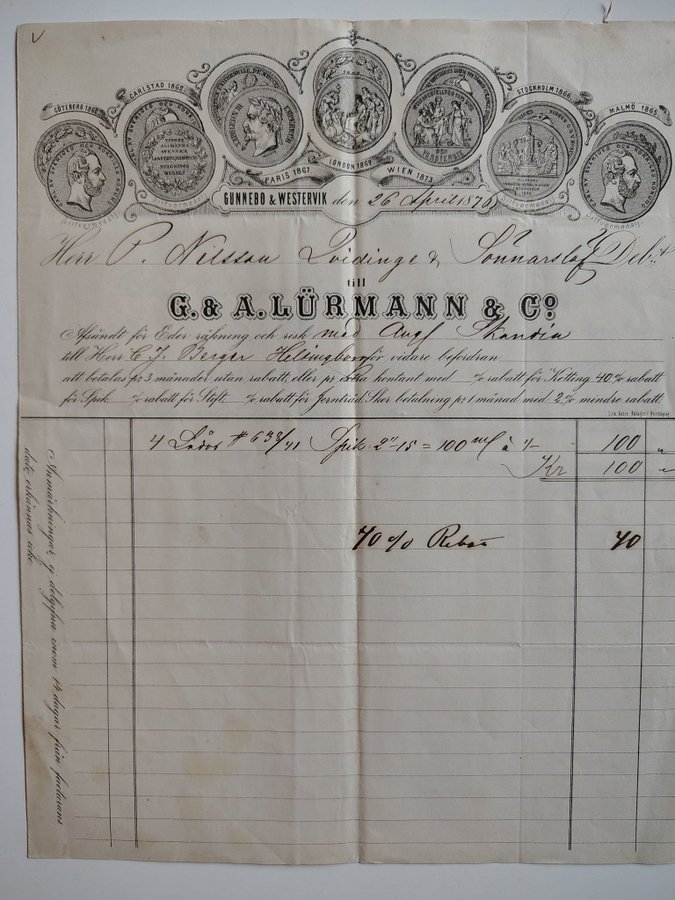 GÖTEBORG 186
CARLSTAD 1862
PARIS 1867
LONDON 1862
WIEN 1873
STOCKHOLM 1866
MALMÖ 1865
Silfvermedalj
Silfvermedalj
GUNNEBO & WESTERVIK den 26 April 1876
Herr P. Nilsson Qvidinge & Sönnarslöf Debet
till
G. & A. LÜRMANN & Co.
Afsändt för Eder räkning och risk med Angf Skandia
till Herr C J. Berger Helsingborg för vidare befordran
att betalas pr 3 månader utan rabatt, eller pr kontant med % rabatt för Kätting 40 % rabatt
för Spik % rabatt för Stift % rabatt för Jerntråd. Sker betalning pr 1 månad med 2 % mindre rabatt.
4 Lådor # 638/41 Spik 2"-15 = 100 à 1/- 100 "
Kr 100 "
40 % Rabatt 40
Anmärkningar, ej delgifna inom 14 dagar från fakturans
dato erkännas icke